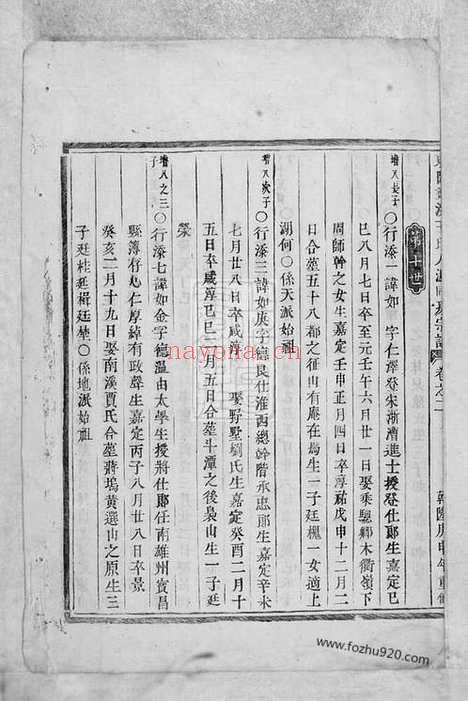 卷之二
第十世
增八長子〇行添一諱如 字仁澤登宋浙漕進士授登仕郎生嘉定己
巳八月七日卒至元壬午六月廿一日娶乘驄鄉木衢嶺下
周師幹之女生嘉定壬申正月四日卒淳祐戊申十二月二
日合塟五十八都之征山有庵在焉生一子廷 一女適上
湖何〇係天派始祖
增八次子〇行添三諱如庚字德良仕淮西總幹階承忠郎生嘉定辛未
七月廿八日卒咸淳 娶野墅劉氏生嘉定癸酉二月十
五日卒咸淳己巳二月五日合塟斗潭之後裊山生一子廷
榮
增八之三子〇行添七諱如金字德溫由太學生授將仕郎任南雄州寶昌
縣簿行恕仁厚綽有政聲生嘉定丙子八月廿八日卒景
癸亥二月十九日娶南溪賈氏合塟蔣塢黃選山之原生三
子廷桂廷楫廷埜〇係地派始祖
nayona.cn
www.fozhu920.com